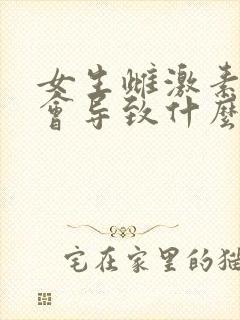 女生雌激素
會导致什麼
宅在家里的猫